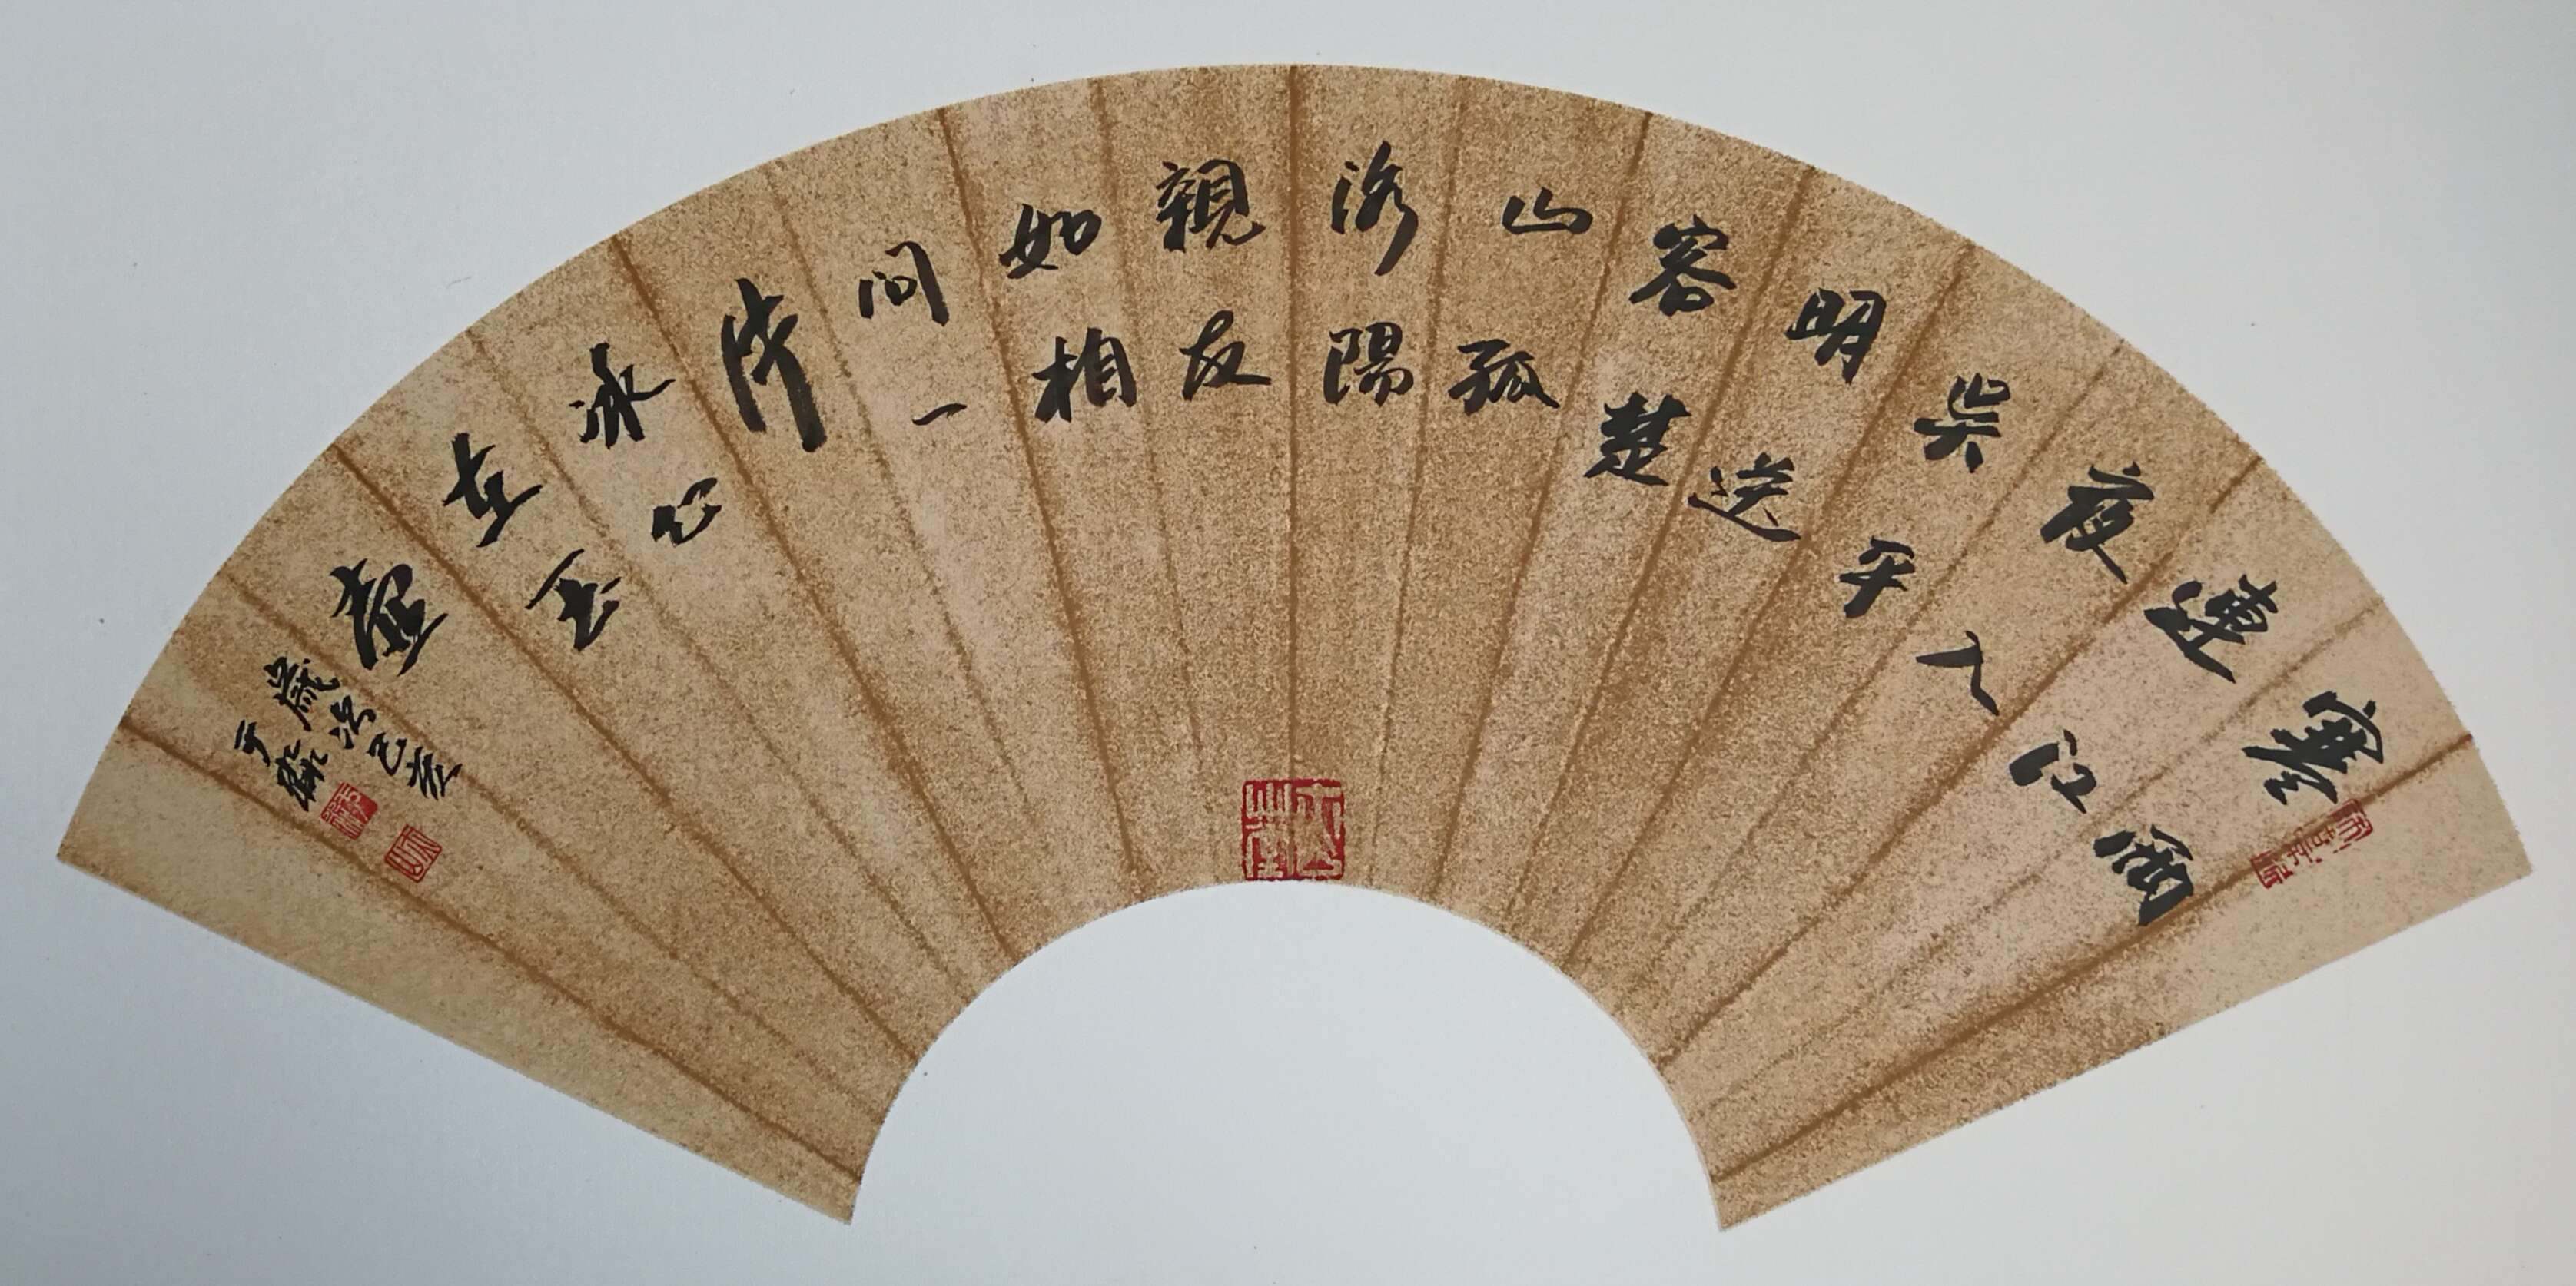 寒雨
連江
夜入
吴平
明送
客楚
山孤
洛陽
親友
如相
問一
片
冰心
在玉
壺
歲次己亥
于